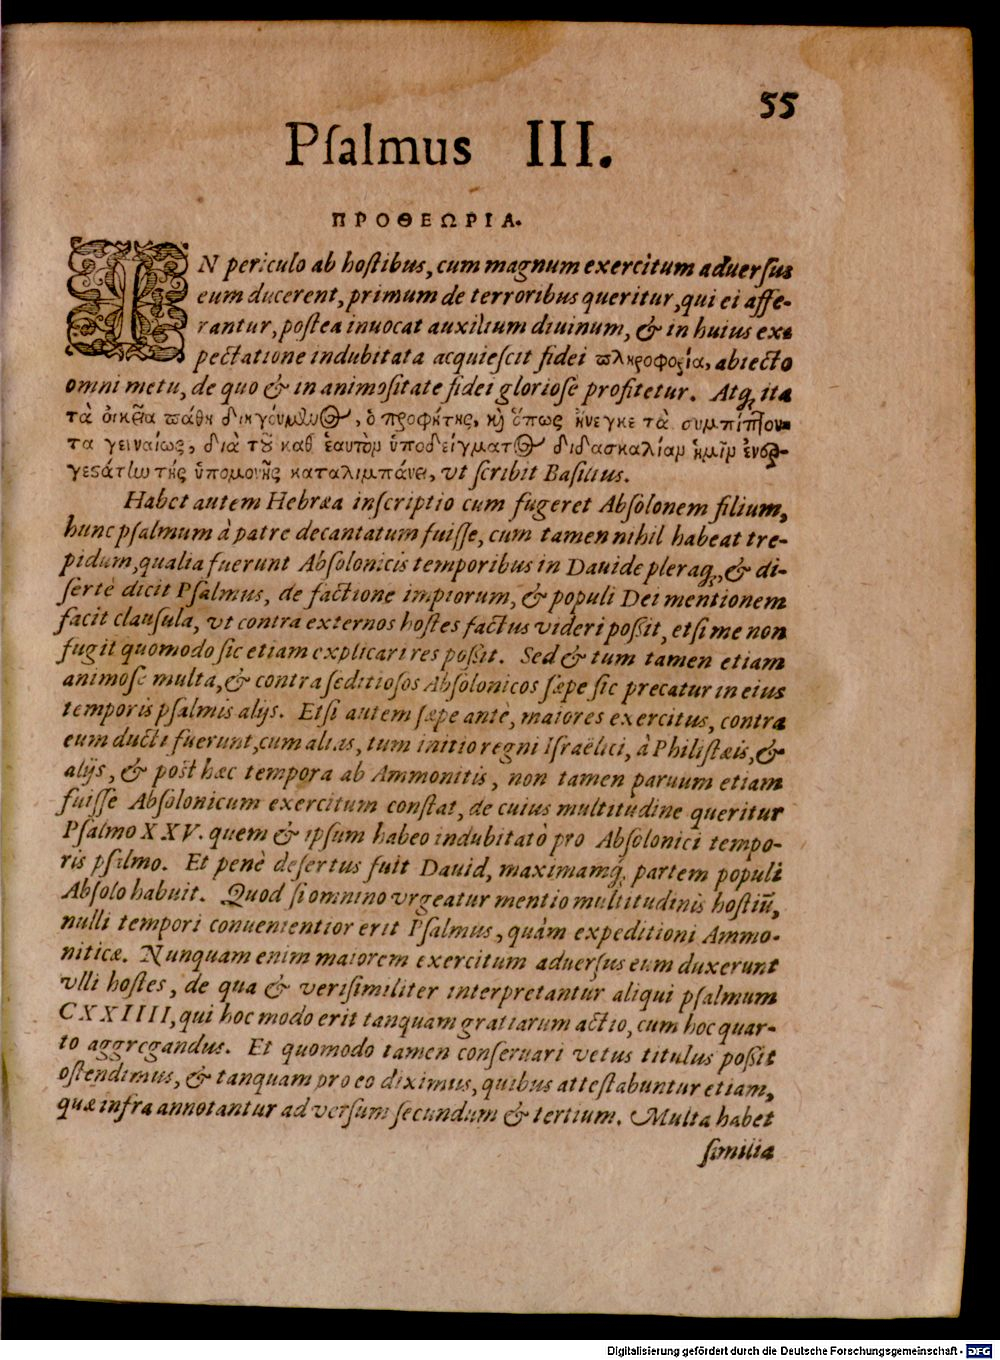 55
Pſalmus III.
ΠΡΟΘΕΩΡΙΑ.
IN periculo ab hoſtibus, cum magnum exercitum aduerſus
eum ducerent, primum de terroribus queritur, qui ei affe-
rantur, poſtea inuocat auxilium diuinum, & in huius ex-
pectatione indubitata acquieſcit fidei πληροφορία, abiecto
omni metu, de quo & in animoſitate fidei glorioſè profitetur. Atq; ita
τὰ οἰκεῖα πάθη διηγούμενος, ὁ προφήτης, καὶ ὅπως ἤνεγκε τὰ συμπίπτον-
τα γενναίως, διὰ τοῦ καθ ἑαυτὸν ὑποδείγματος διδασκαλίαν ἡμῖν ἐναρ-
γεστάτην τῆς ὑπομονῆς καταλιμπάνει, vt ſcribit Baſilius.
Habet autem Hebræa inſcriptio cum fugeret Abſolonem filium,
hunc pſalmum à patre decantatum fuiſſe, cum tamen nihil habeat tre-
pidum, qualia fuerunt Abſolonicis temporibus in Dauide pleraq;, & di-
ſertè dicit Pſalmus, de factione impiorum, & populi Dei mentionem
facit clauſula, vt contra externos hoſtes factus videri poßit, etſi me non
fugit quomodo ſic etiam explicari res poßit. Sed & tum tamen etiam
animoſe multa, & contra ſeditioſos Abſolonicos ſæpe ſic precatur in eius
temporis pſalmis alijs. Etſi autem ſæpe antè, maiores exercitus, contra
eum ducti fuerunt, cum aliàs, tum initio regni Iſraëlici, à Philiſtæis, &
alijs, & poſt hæc tempora ab Ammonitis, non tamen paruum etiam
fuiſſe Abſolonicum exercitum conſtat, de cuius multitudine queritur
Pſalmo XXV. quem & ipſum habeo indubitatò pro Abſolonici tempo-
ris pſalmo. Et penè deſertus fuit Dauid, maximamq; partem populi
Abſolo habuit. Quod ſi omnino vrgeatur mentio multitudinis hoſtiū,
nulli tempori conuenientior erit Pſalmus, quàm expeditioni Ammo-
niticæ. Nunquam enim maiorem exercitum aduerſus eum duxerunt
vlli hoſtes, de qua & veriſimiliter interpretantur aliqui pſalmum
CXXIIII, qui hoc modo erit tanquam gratiarum actio, cum hoc quar-
to aggregandus. Et quomodo tamen conſeruari vetus titulus poßit
oſtendimus, & tanquam pro eo diximus, quibus atteſtabuntur etiam,
quæ infra annotantur ad verſum ſecundum & tertium. Multa habet
ſimilia
Digitalisierung gefördert durch die Deutsche Forschungsgemeinschaft - DFG